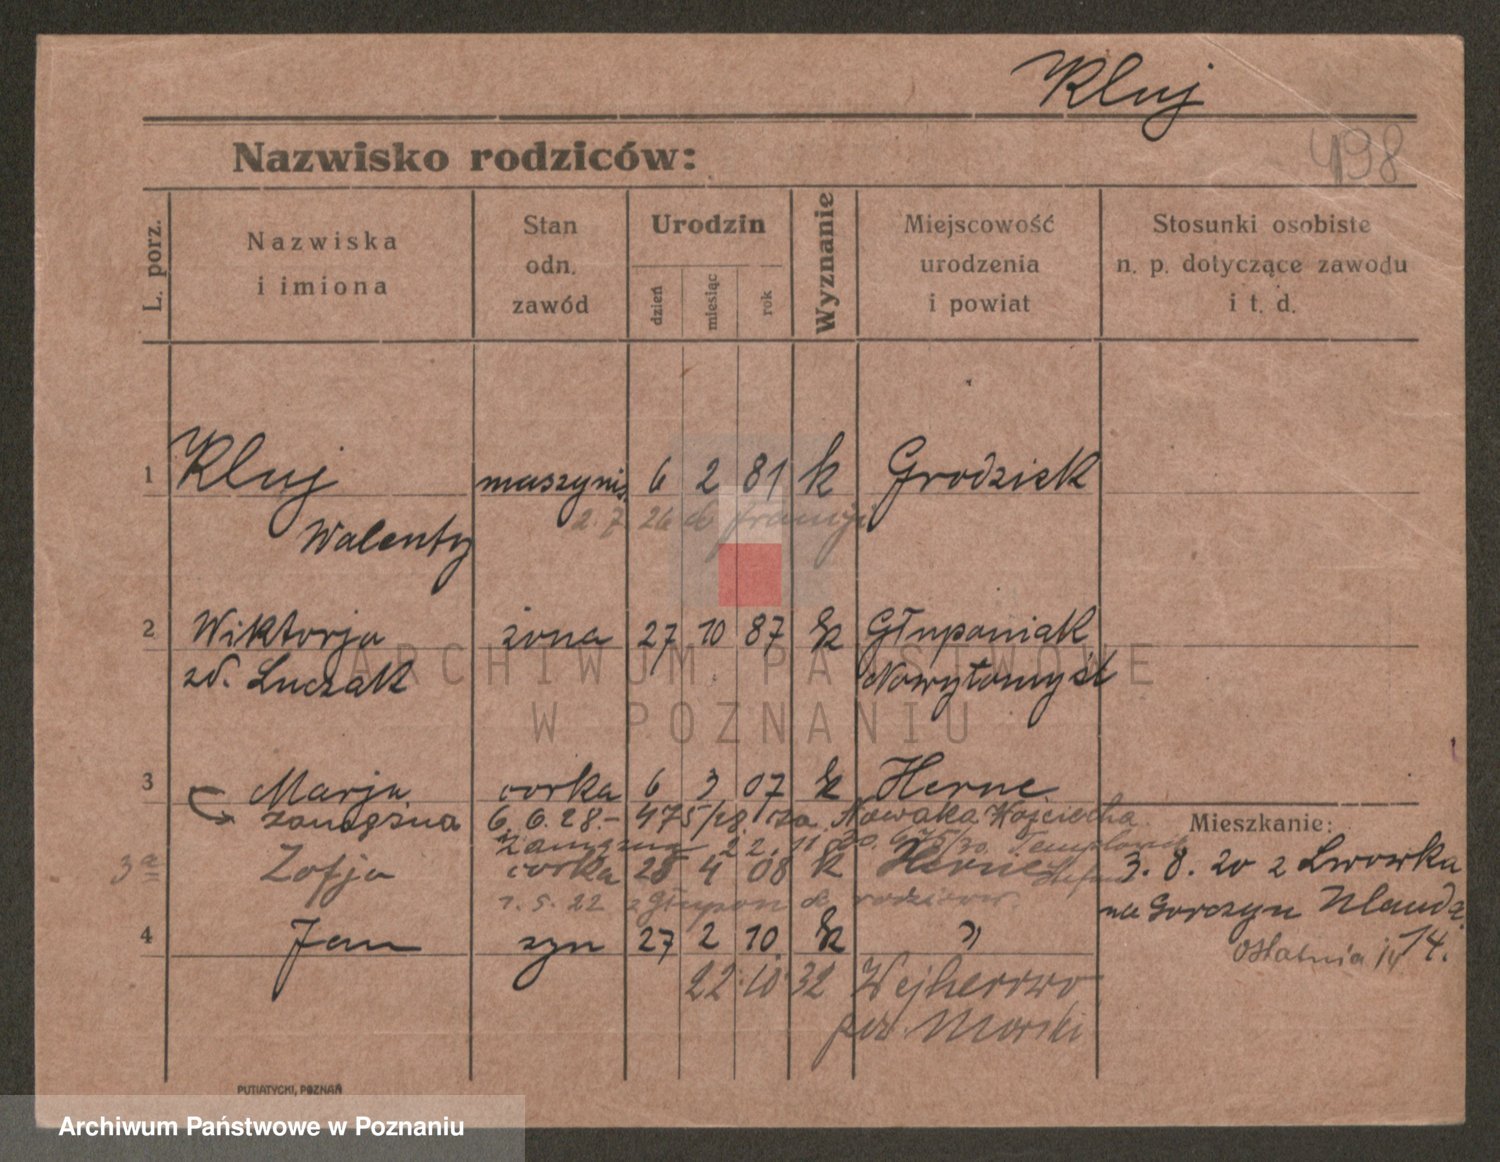 Kluj
498
Nazwisko rodziców:
L. porz.
Nazwiska
i imiona
Stan
odn.
zawód
Urodzin
dzień
miesiąc
rok
Wyznanie
Miejscowość
urodzenia
i powiat
Stosunki osobiste
n. p. dotyczące zawodu
i t. d.
1 Kluj maszynis 6 2 81 k Grodzisk
2. 7. 26 do francji
Walenty
2 Wiktorja żona 27 10 87 k Głuponiak
zd. Luczak Nowytomyśl
ARCHIWUM PAŃSTWOWE
W POZNANIU
3 Marja córka 6 3 07 k Herne
zamężna 6. 6. 28.- 475/28. za Nowaka Wojciecha
Mieszkanie:
zamężna 22. 11 30. 675/30.
3a Zofja córka 28 4 08 k Herne Stefan
3. 8. 20 z Lwowka
1. 5. 22 z Głupon do rodziców
na Gorczyn
4 Jan syn 27 2 10 k "
Ostatnia 14.
22 10 32 Wejherowo
pow. Morski
PUTIATYCKI, POZNAŃ
Archiwum Państwowe w Poznaniu